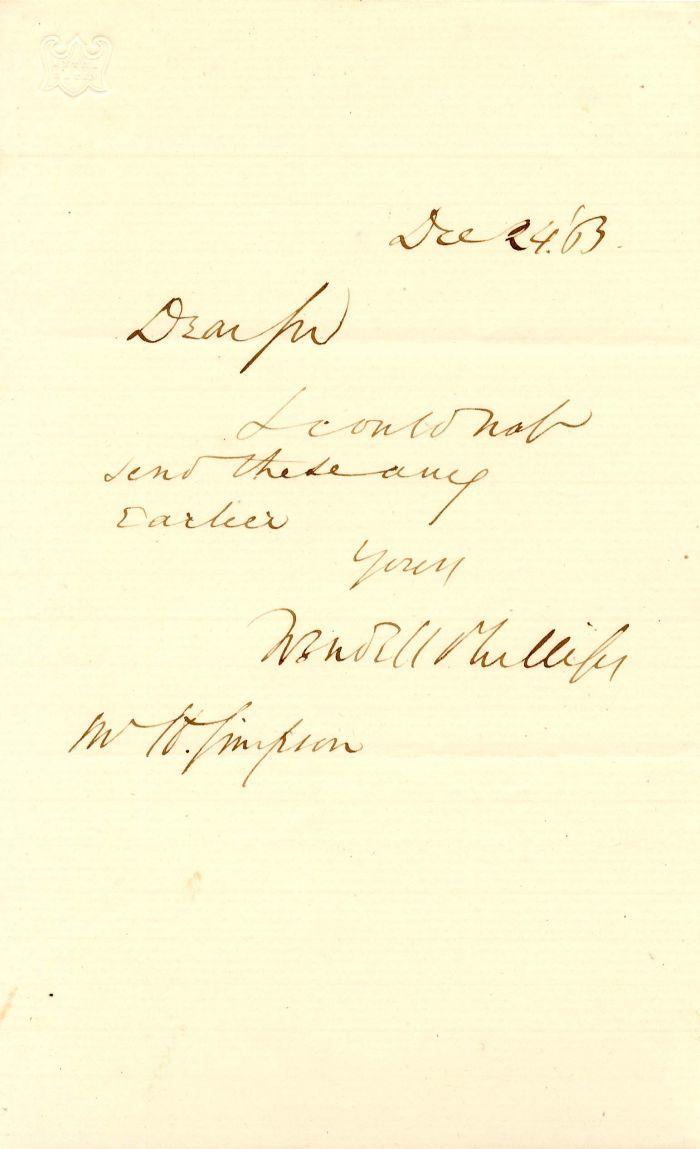 Dec 24. '63.
Dear Sir
I could not
send these any
Earlier
Yours
Wendell Phillips
Mr H. Simpson